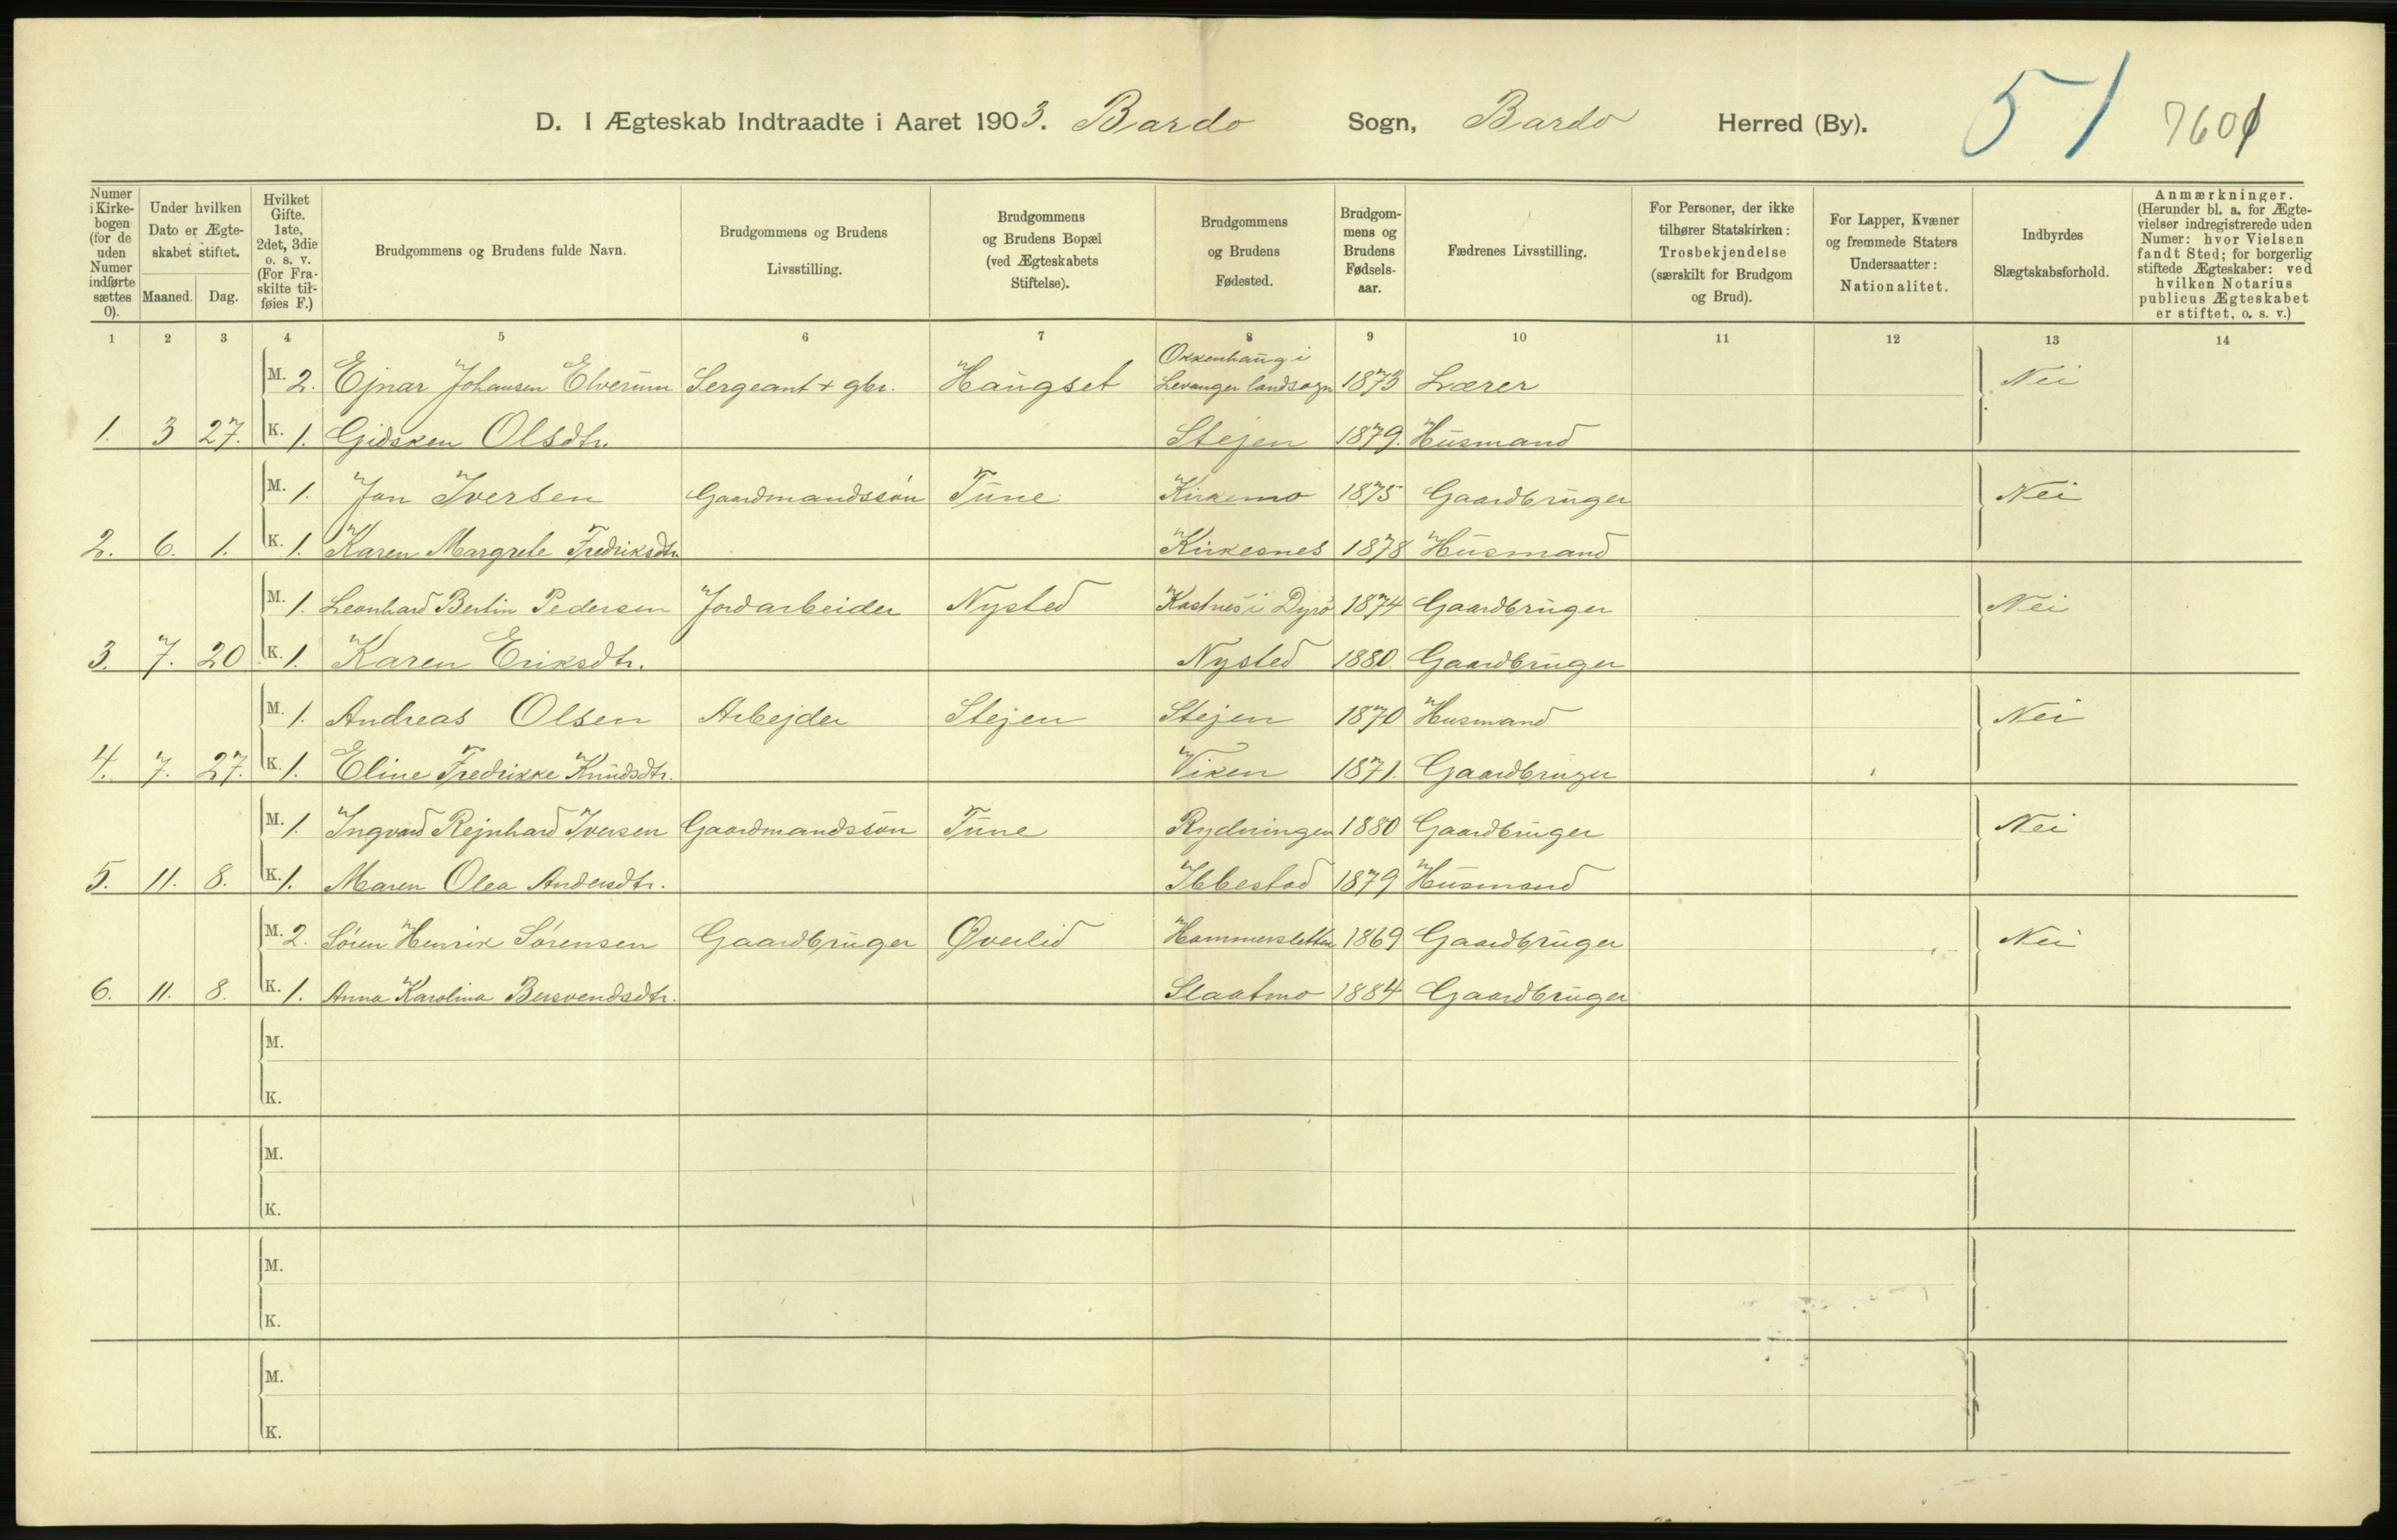 D. I Ægteskab Indtraadte i Aaret 1903. Bardo Sogn, Bardo Herred (By). 51 7601
Numer i Kirkebogen (for de uden Numer indførte sættes 0).
Under hvilken Dato er Ægteskabet stiftet.
Maaned. Dag.
Hvilket Gifte. 1ste, 2det, 3die o. s. v. (For Fraskilte tilføies F.)
Brudgommens og Brudens fulde Navn.
Brudgommens og Brudens Livsstilling.
Brudgommens og Brudens Bopæl (ved Ægteskabets Stiftelse).
Brudgommens og Brudens Fødested.
Brudgommens og Brudens Fødselsaar.
Fædrenes Livsstilling.
For Personer, der ikke tilhører Statskirken: Trosbekjendelse (særskilt for Brudgom og Brud).
For Lapper, Kvæner og fremmede Staters Undersaatter: Nationalitet.
Indbyrdes Slægtskabsforhold.
Anmærkninger. (Herunder bl. a. for Ægtevielser indregistrerede uden Numer: hvor Vielsen fandt Sted; for borgerlig stiftede Ægteskaber: ved hvilken Notarius publicus Ægteskabet er stiftet, o. s. v.)
1 2 3 4 5 6 7 8 9 10 11 12 13 14
M. 2. Ejnar Johansen Elverum Sergeant + gbr. Haugset Okkenhaug i Levanger landsogn 1873 Lærer Nei
1. 3 27. K. 1. Gidsken Olsdtr. Stejen 1879. Husmand
M. 1. Jon Iversen Gaardmandssøn Tune Kirkemo 1875 Gaardbruger Nei
2. 6. 1. K. 1. Karen Margrete Fredriksdtr. Kirkesnes 1878 Husmand
M. 1. Leonhard Bertin Pedersen Jordarbeider Nysted Kastnes i Dyrö 1874 Gaardbruger Nei
3. 7. 20 K. 1. Karen Eriksdtr. Nysted 1880. Gaardbruger
M. 1. Andreas Olsen Arbejder Stejen Stejen 1870 Husmand Nei
4. 7. 27. K. 1. Eline Fredrikke Knudsdtr. Viken 1871. Gaardbruger
M. 1. Ingvard Rejnhard Iversen Gaardmandssøn Tune Rydningen 1880 Gaardbruger Nei
5. 11. 8. K. 1. Maren Olea Andersdtr. Ibbestad 1879 Husmand
M. 2. Søren Henrik Sørensen Gaardbruger Øverlid Hammersletten 1869 Gaardbruger Nei
6. 11. 8. K. 1. Anna Karolina Bersvendsdtr. Slaatmo 1884 Gaardbruger
M.
K.
M.
K.
M.
K.
M.
K.